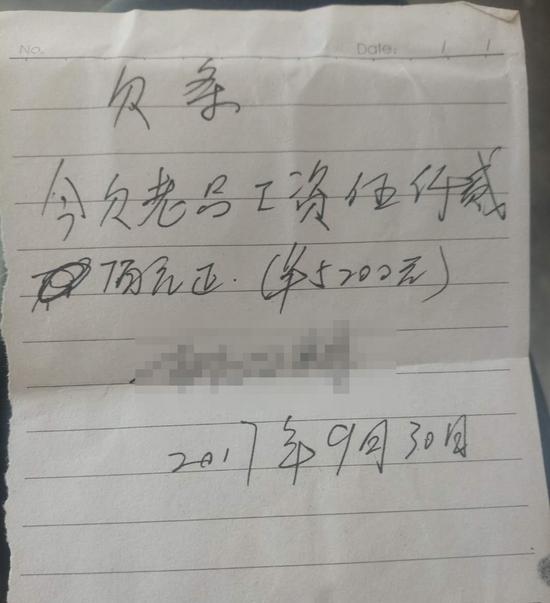 No.
Date: / /
欠条
今欠老吕工资伍仟贰
佰元正.(¥5200元)
2017年9月30日